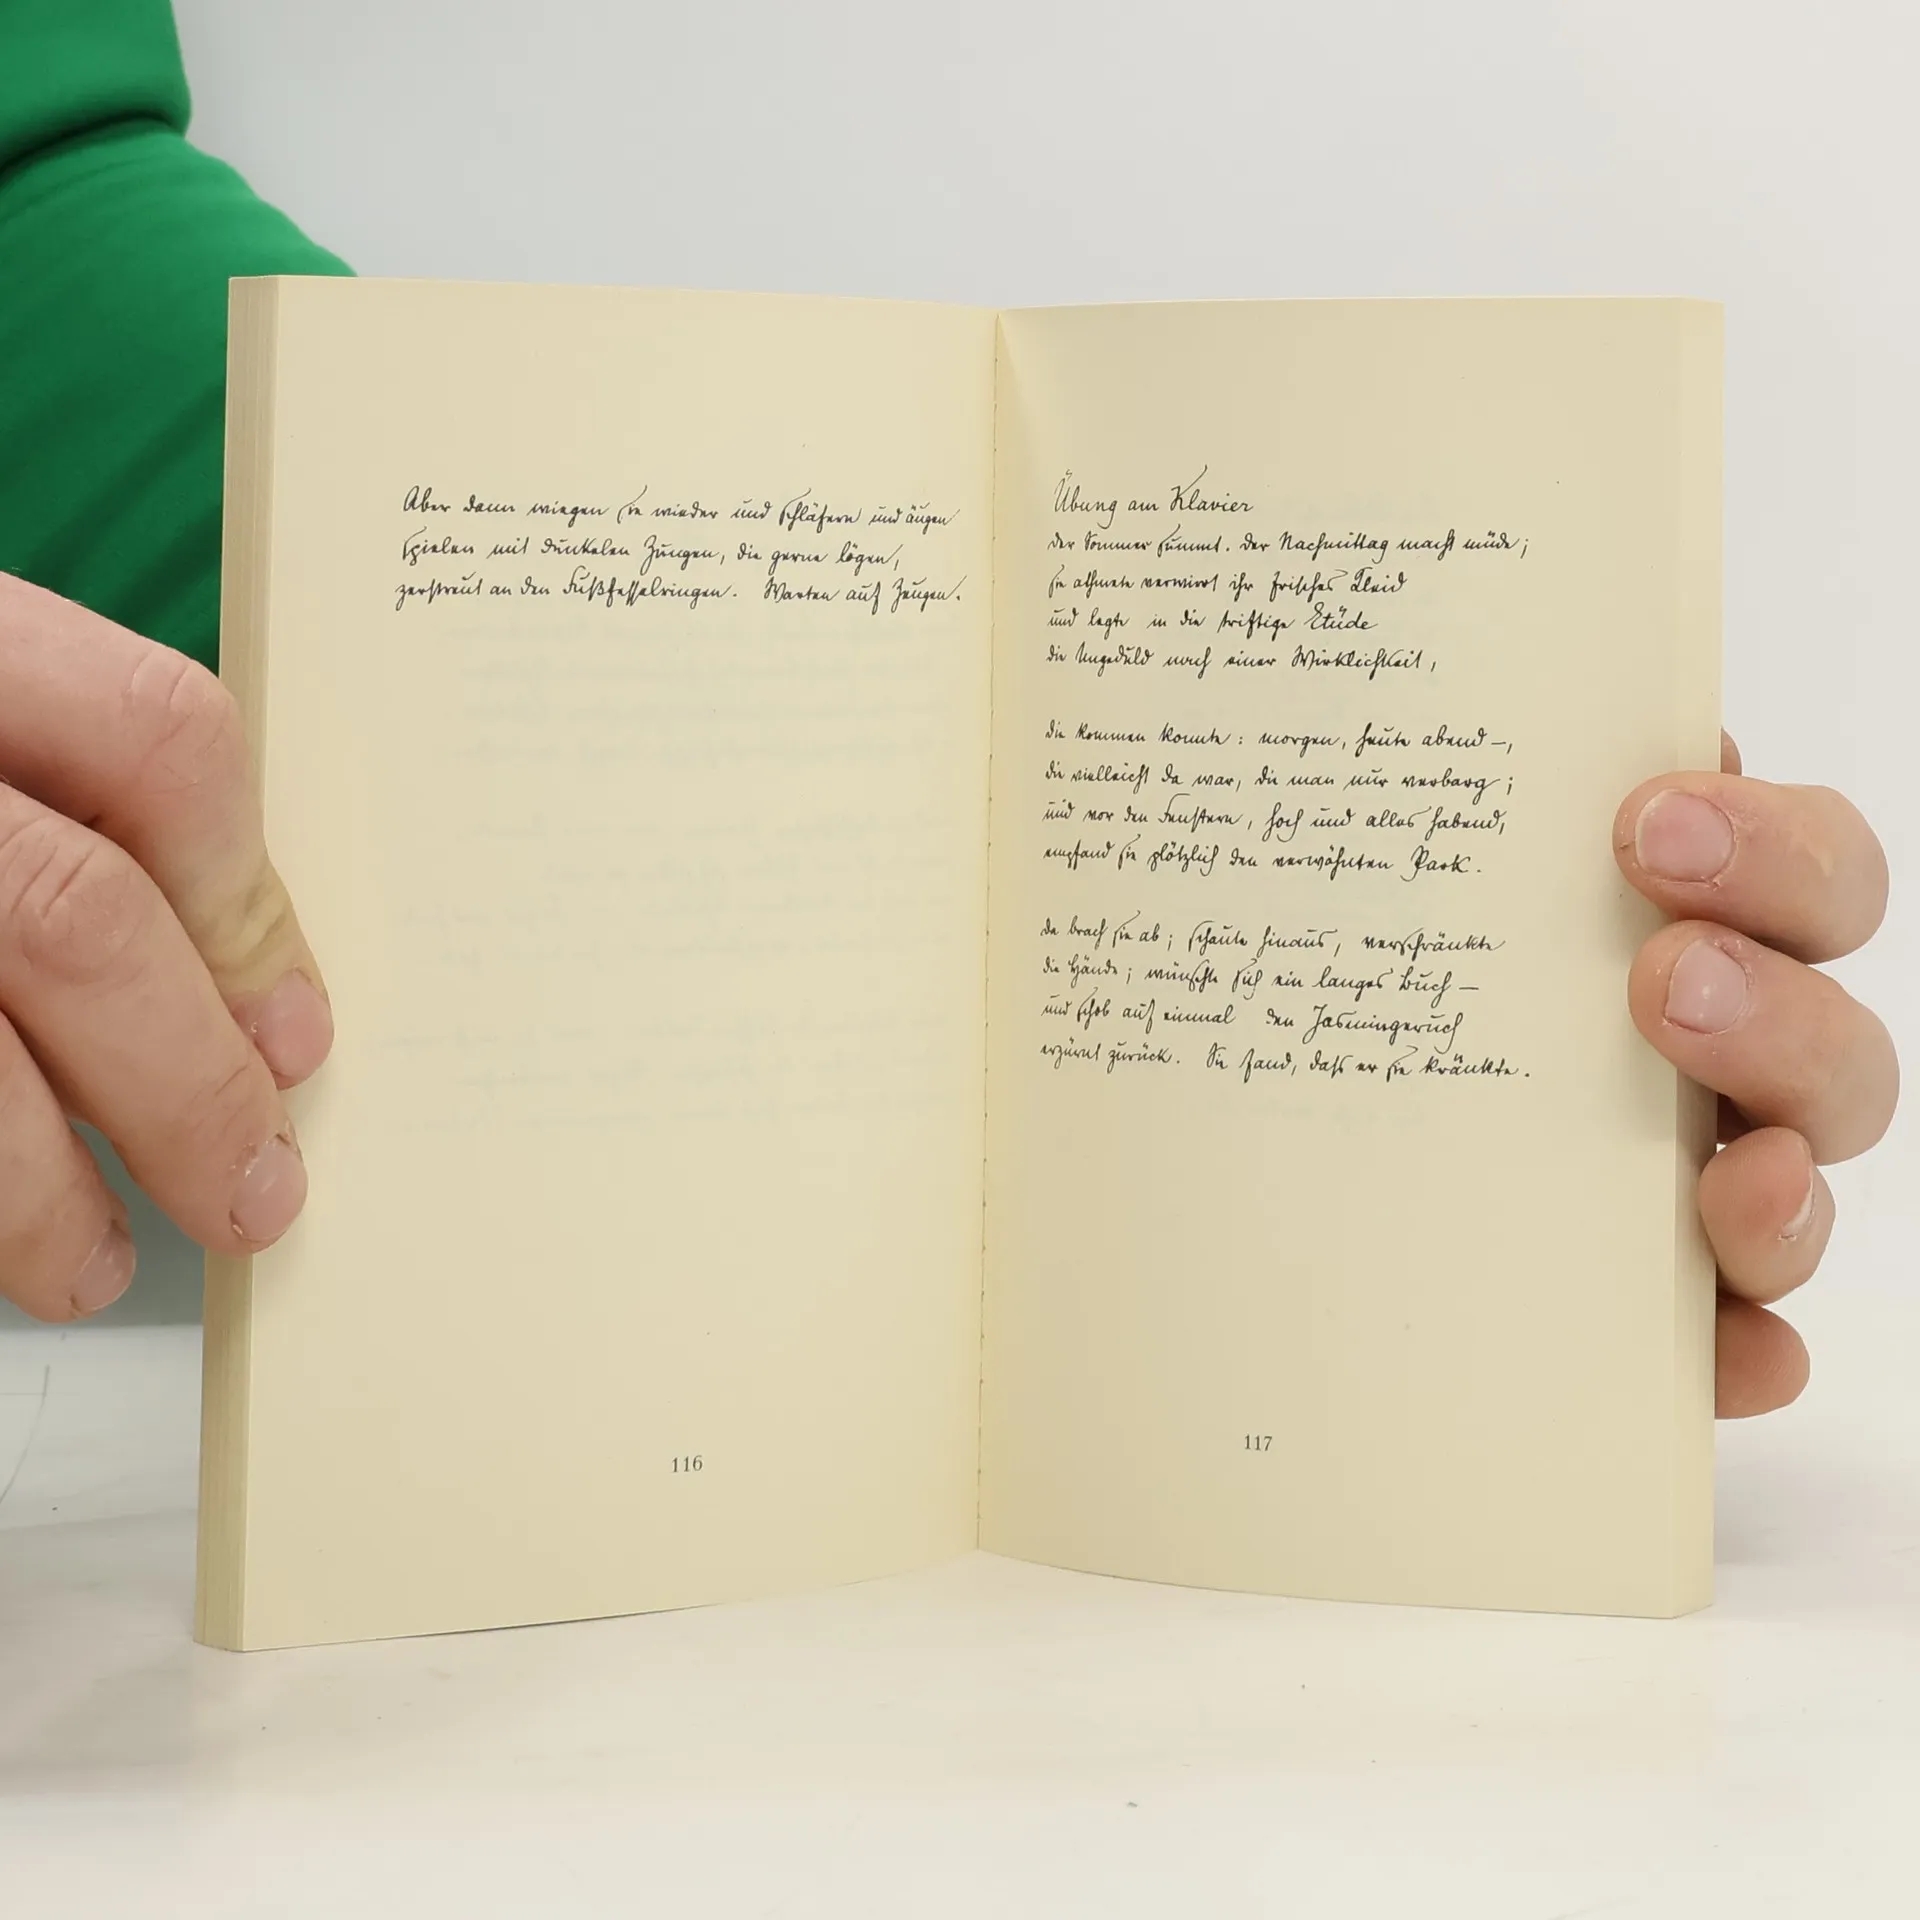 Aber dann wiegen sie wieder und schläfern und äugen
spielen mit dunkelen Zungen, die gerne lögen,
zerstreut an den Fußfesselringen. Warten auf Zeugen.
116
Übung am Klavier
der Sommer summt. der Nachmittag macht müde;
sie athmete verwirrt ihr frisches Kleid
und legte in die triftige Etüde
die Ungeduld nach einer Wirklichkeit,
die kommen konnte: morgen, heute abend —,
die vielleicht da war, die man nur verbarg;
und vor den Fenstern, hoch und alles habend,
empfand sie plötzlich den verwöhnten Park.
da brach sie ab; schaute hinaus, verschränkte
die Hände; wünschte sich ein langes Buch —
und schob auf einmal den Jasmingeruch
erzürnt zurück. Sie fand, dass er sie kränkte.
117